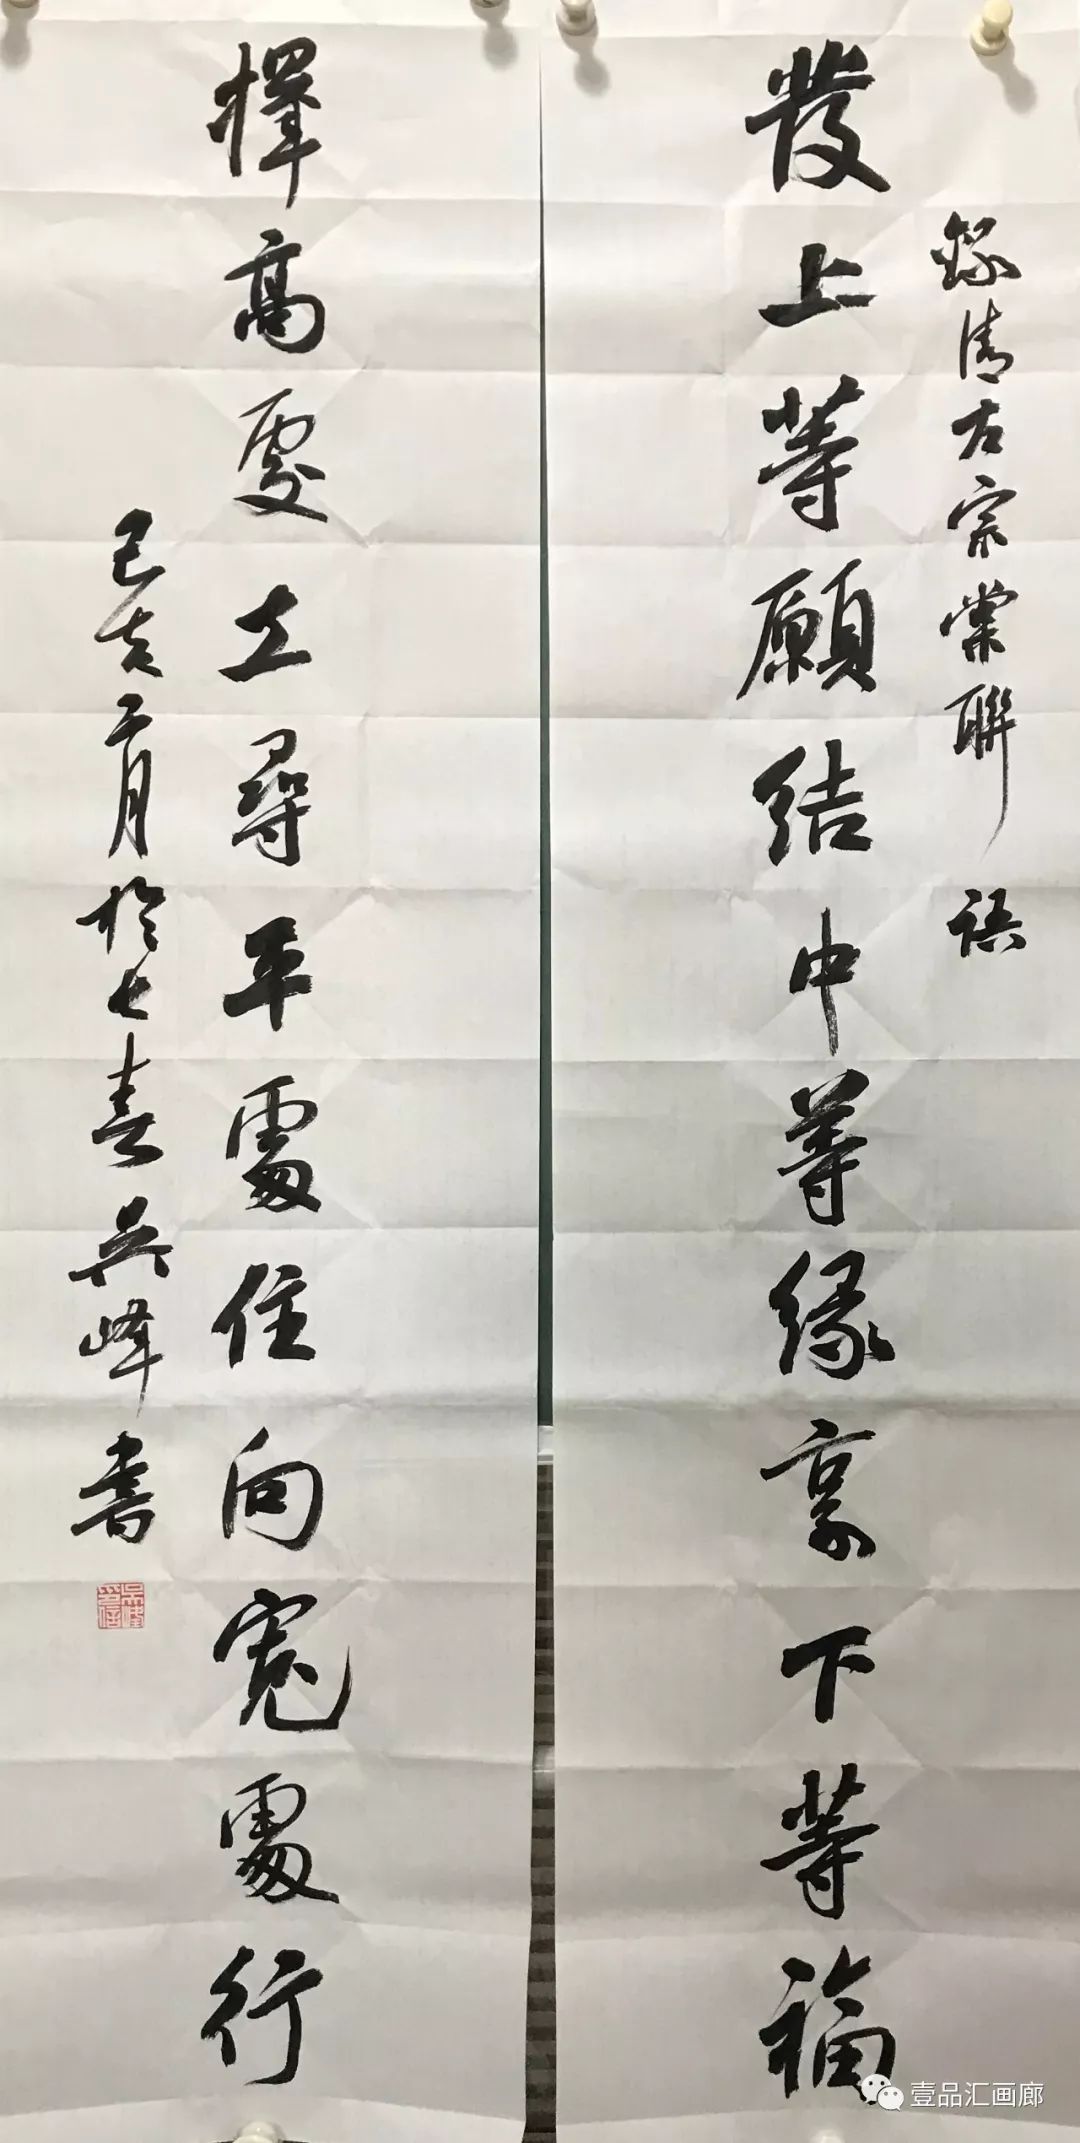 錄清左宗棠聯語
發上等願結中等緣享下等福
擇高處立尋平處住向寬處行
己亥二月於七喜吳峰書
吳峰印信
壹品汇画廊